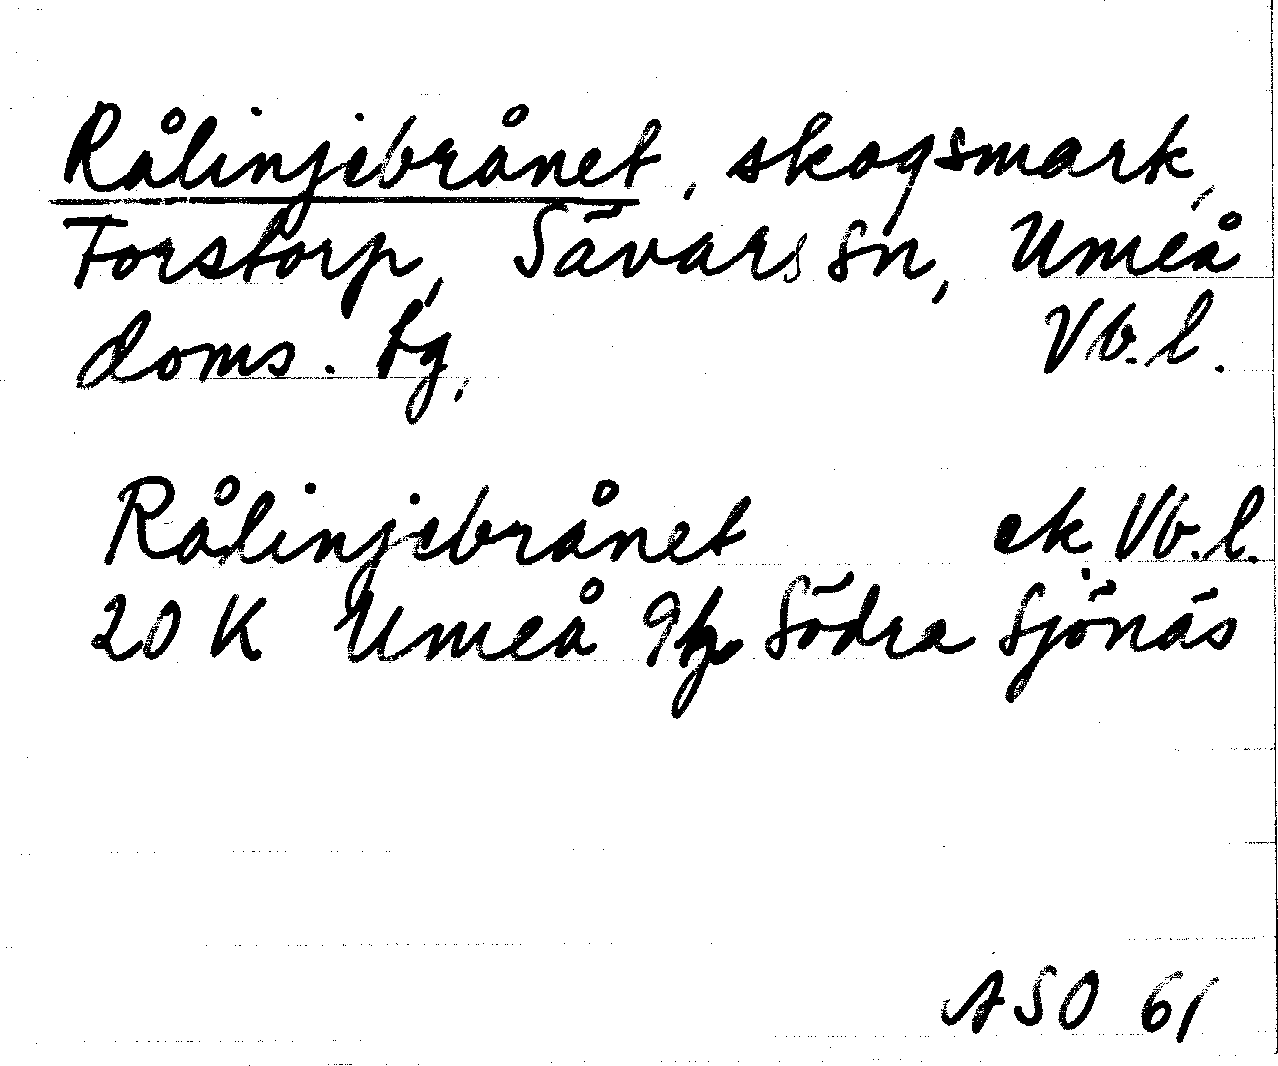 Rålinjebrånet, skogsmark,
Forstorp, Sävars sn, Umeå
doms. tg, Vb. l.
Rålinjebrånet ek. Vb. l.
20 K Umeå 9h Södra Sjönäs
ASO 61